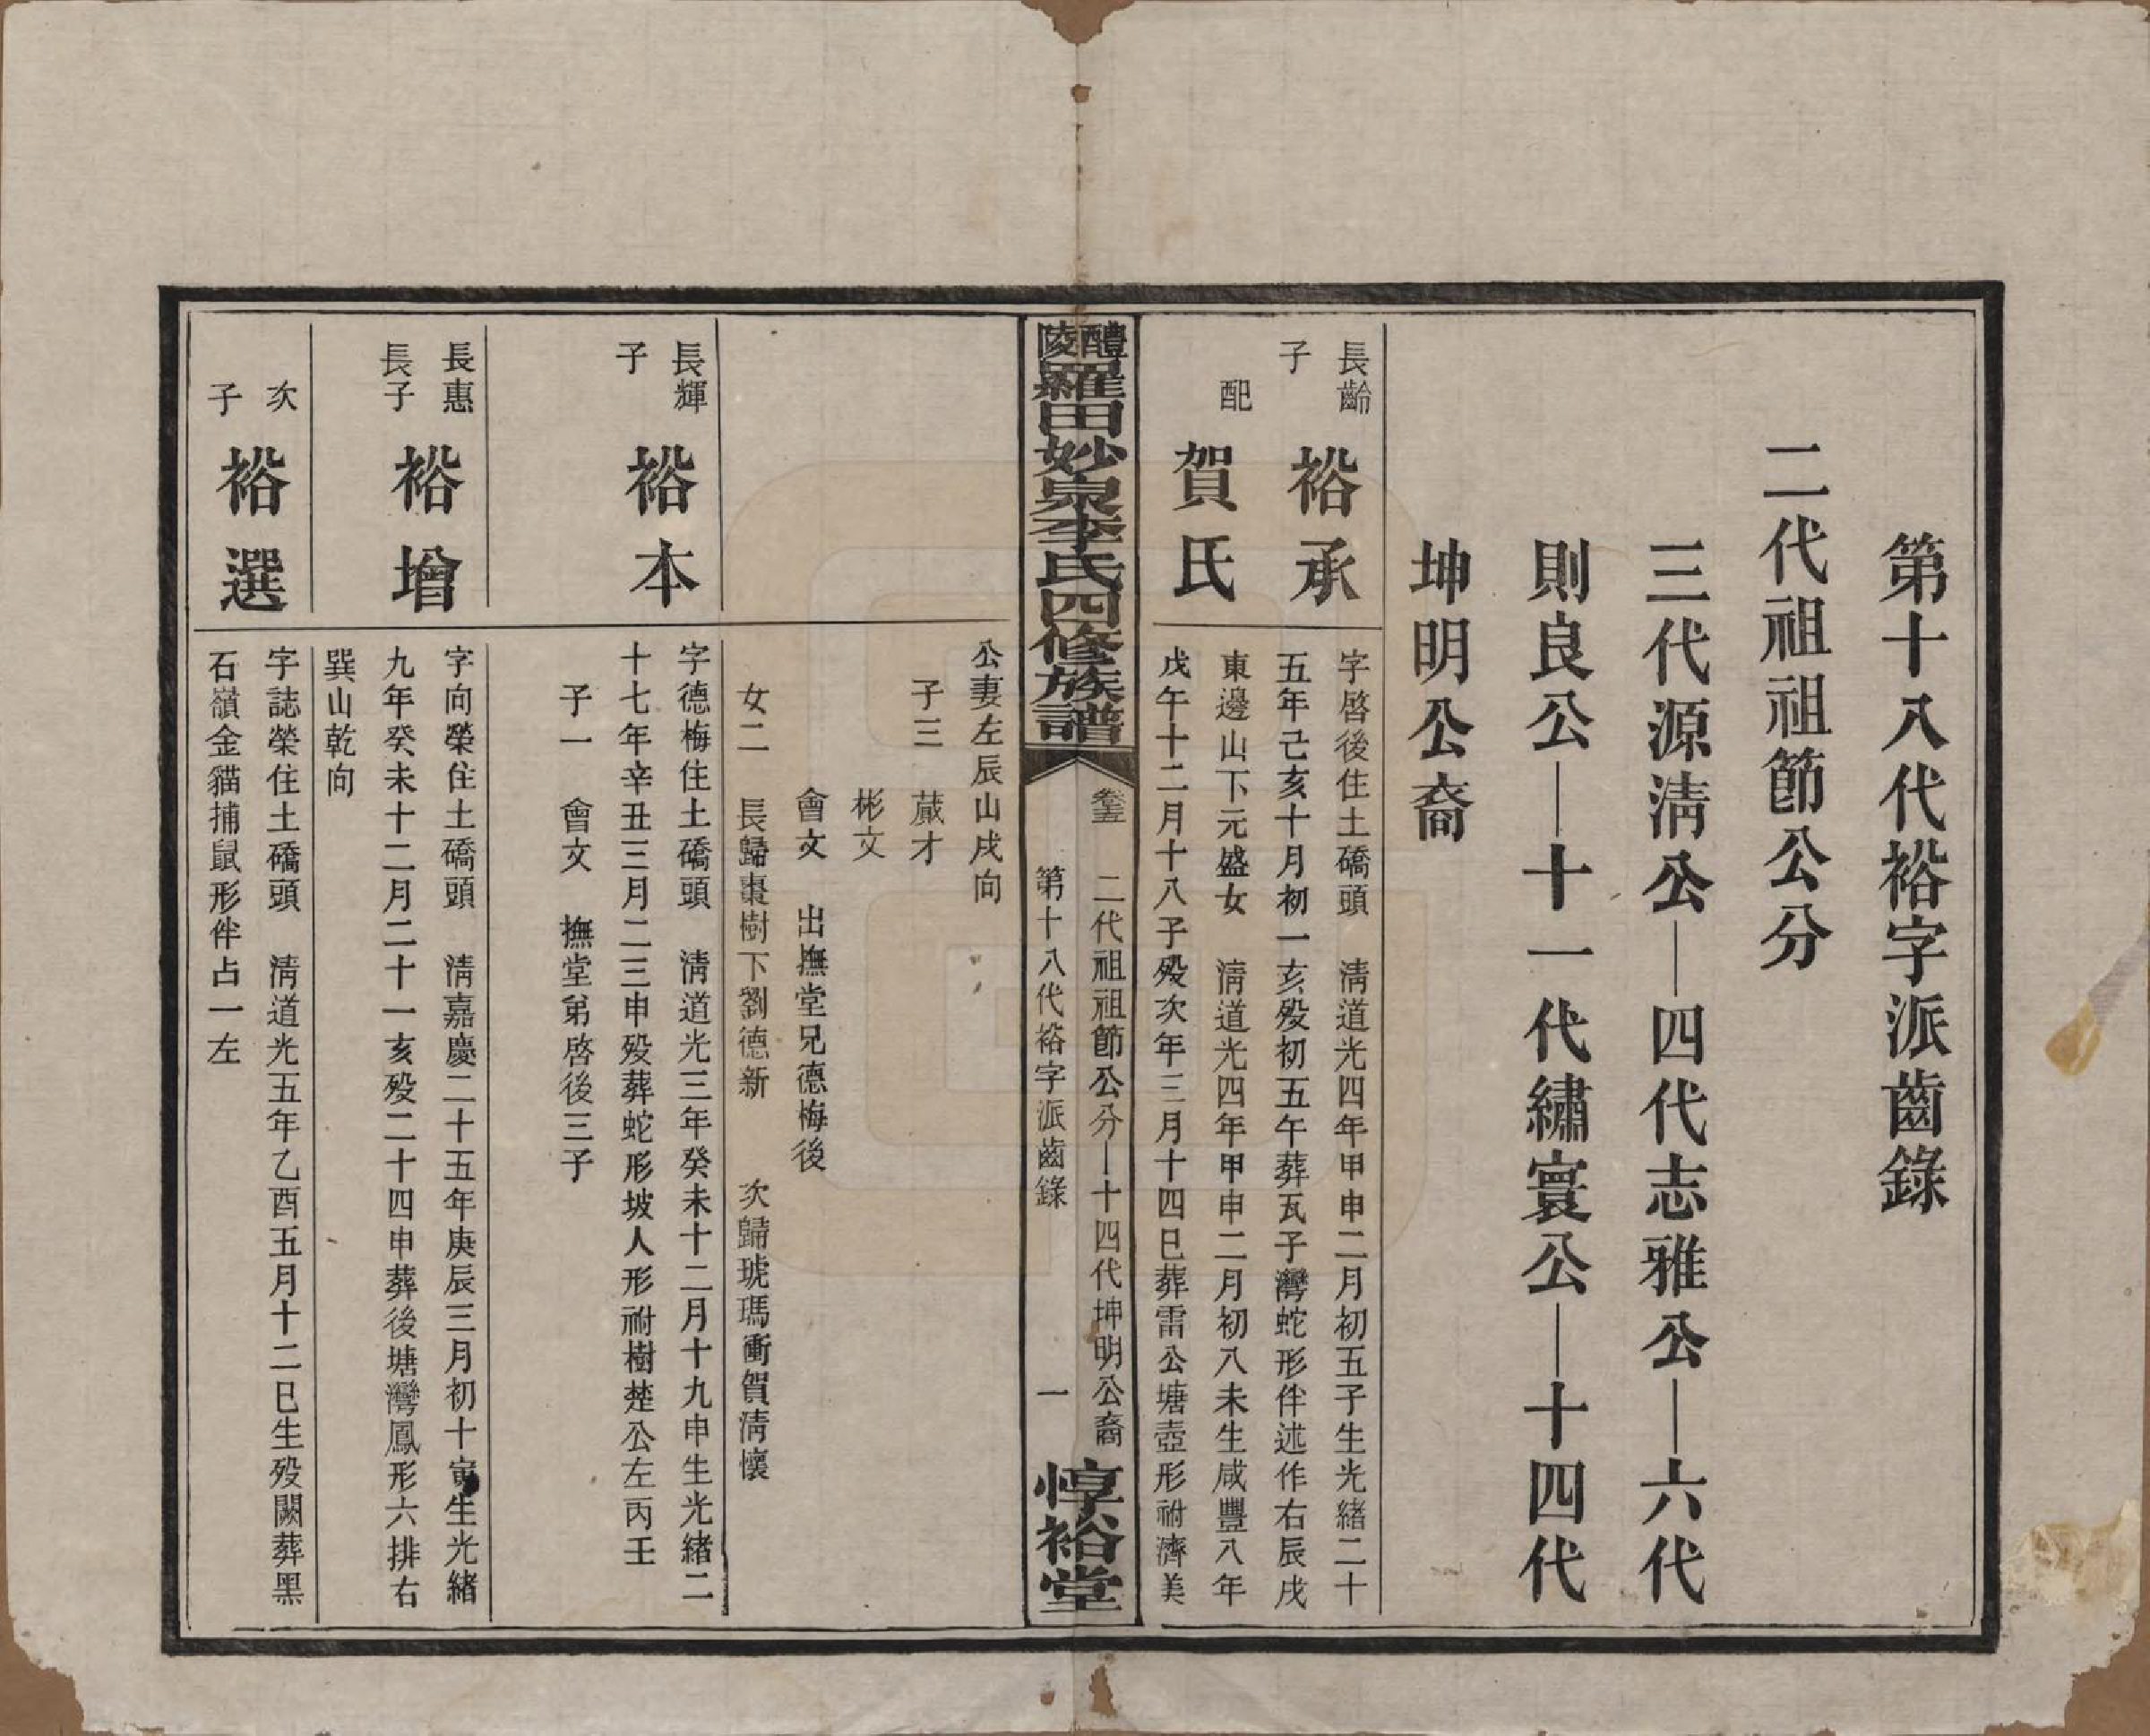 第十八代裕字派齒錄
二代祖祖節公分
三代源清公—四代志雅公—六代
則良公—十一代繡寰公—十四代
坤明公裔
長齡
子
裕承
字啓後住土礄頭　清道光四年甲申二月初五子生光緒二十
五年己亥十月初一亥殁初五午葬瓦子灣蛇形伴述作右辰戌
配
賀氏
東邊山下元盛女　清道光四年甲申二月初八未生咸豐八年
戊午十二月十八子殁次年三月十四巳葬雷公塘壺形祔濟美
醴陵羅田妙泉李氏四修族譜
卷三
二代祖祖節公分—十四代坤明公裔
第十八代裕字派齒錄
一
惇裕堂
公妻左辰山戌向
子三　蕆才
彬文
會文　出撫堂兄德梅後
女二　長歸棗樹下劉德新　次歸琥瑪衝賀清懷
長輝
子
裕本
字德梅住土礄頭　清道光三年癸未十二月十九申生光緒二
十七年辛丑三月二三申殁葬蛇形坡人形祔樹楚公左丙壬
子一　會文　撫堂弟啓後三子
長惠
長子
裕增
字向榮住土礄頭　清嘉慶二十五年庚辰三月初十寅生光緒
九年癸未十二月二十一亥殁二十四申葬後塘灣鳳形六排右
巽山乾向
次
子
裕選
字誌榮住土礄頭　清道光五年乙酉五月十二巳生殁闕葬黑
石嶺金貓捕鼠形伴占一左